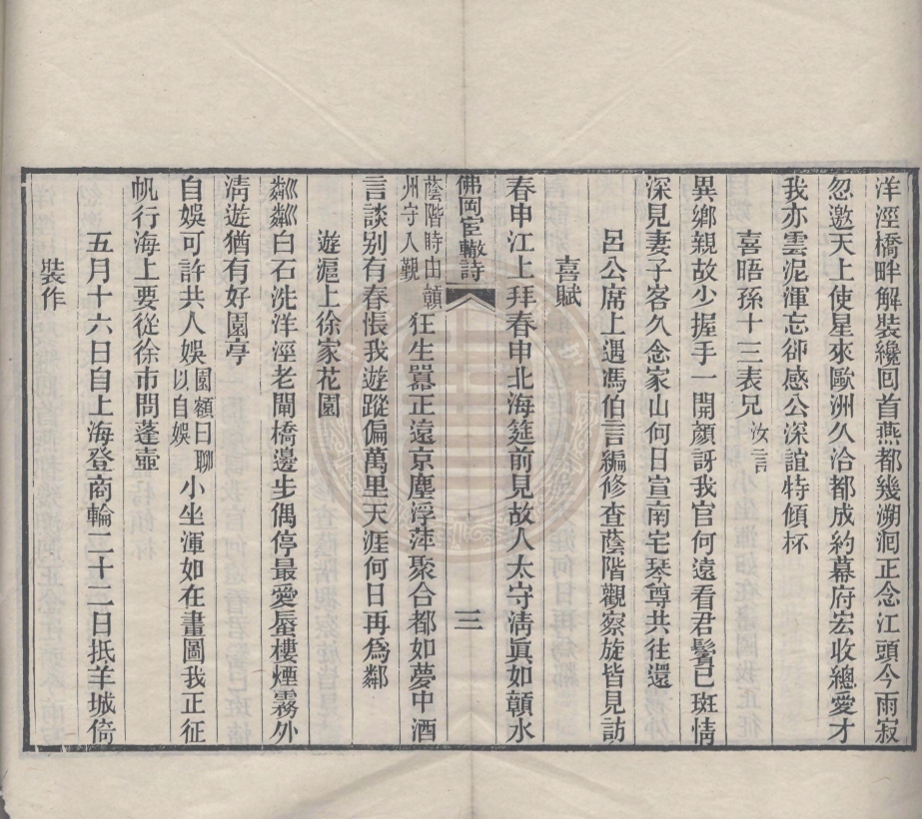 洋涇橋畔解裝纔回首燕都幾溯洄正念江頭今雨寂
忽邀天上使星來歐洲久洽都成約幕府宏收總愛才
我亦雲泥渾忘卻感公深誼特傾杯
喜晤孫十三表兄汝言
異鄉親故少握手一開顏訝我官何遠看君鬢已斑情
深見妻子客久念家山何日宣南宅琴尊共往還
呂公席上遇馮伯言編修查蔭階觀察旋皆見訪
喜賦
春申江上拜春申北海筵前見故人太守淸眞如顗水
佛岡宦轍詩
三
蔭階時由
州守入覲狂生囂正遠京塵浮萍聚合都如夢中酒
言談别有春悵我遊蹤偏萬里天涯何日再爲鄰
遊滬上徐家花園
粼粼白石洗洋涇老閘橋邊步偶停最愛蜃樓煙霧外
淸遊猶有好園亭
自娛可許共人娛園額曰聊以自娛小坐渾如在畫圖我正征
帆行海上要從徐市問蓬壺
五月十六日自上海登商輪二十二日抵羊城倚
裝作